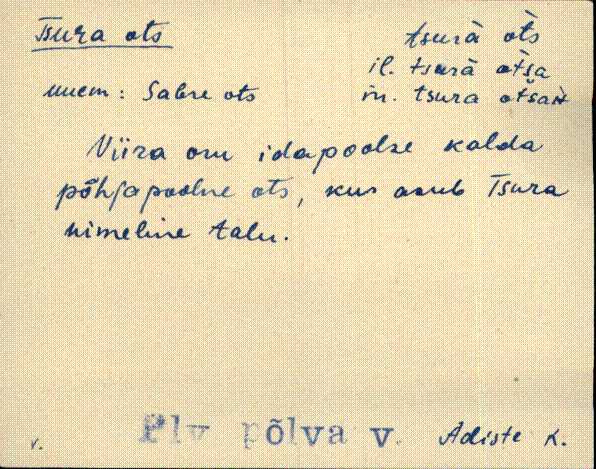 Tsura ots tsurà òt̀s
il. tsurà ot̀ša
muem: Sabre ots in. tsura otšaɜt
Viira oru idapoolse kalda
põhjapoolne ots, kus asub Tsura
nimeline talu.
v. Plv põlva v. Adiste k.